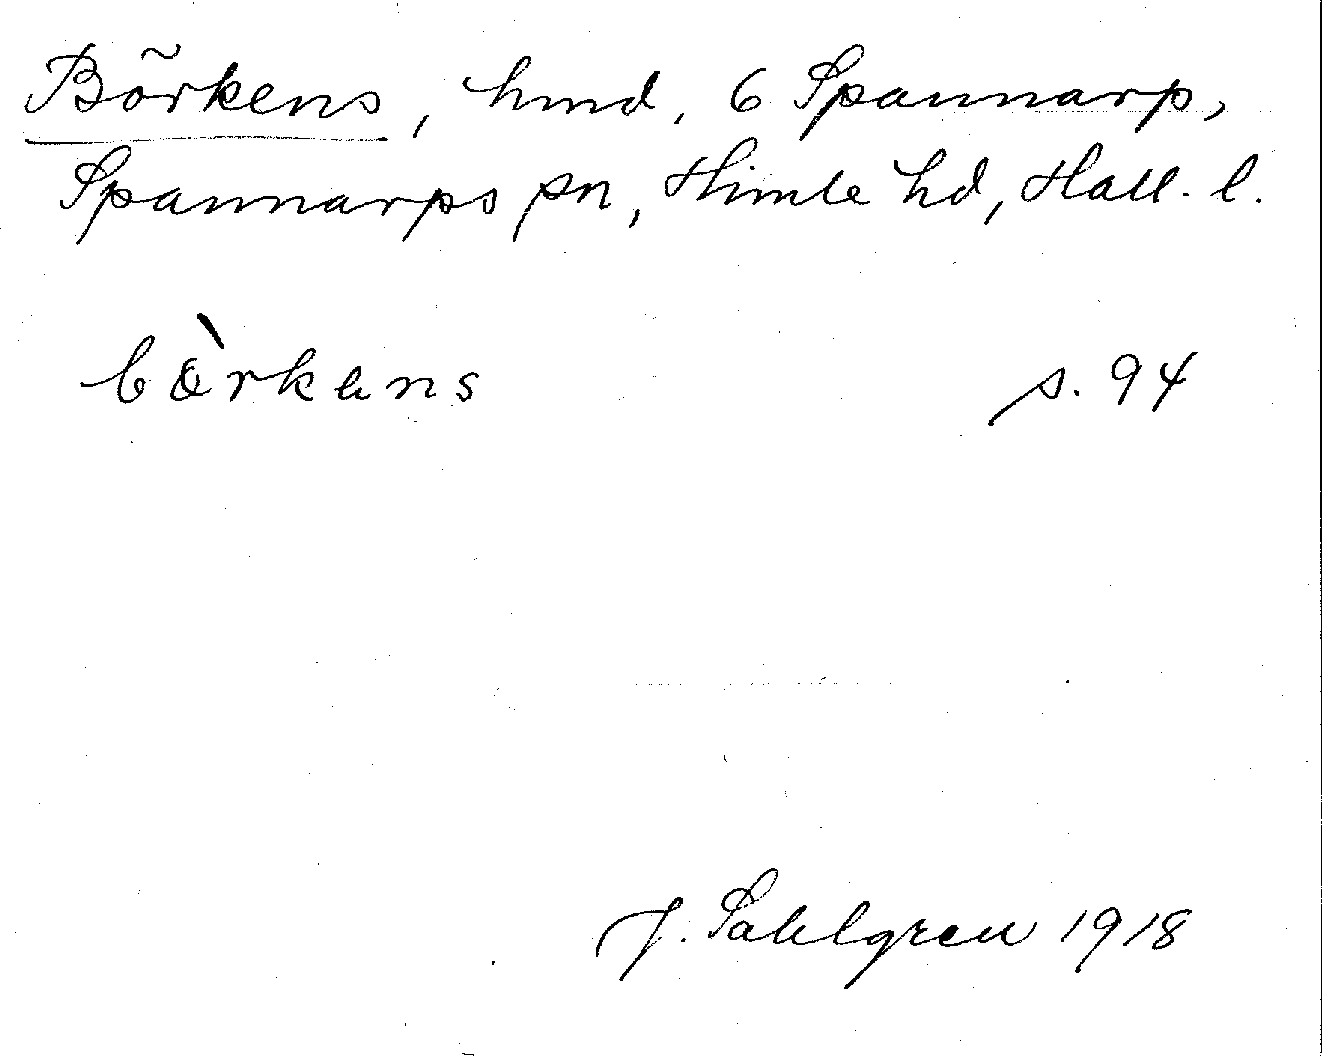 Börkens, hmd, 6 Spannarp,
Spannarps sn, Himle hd, Hall. l.
bɵ̀rkens s. 94
J. Sahlgren 1918